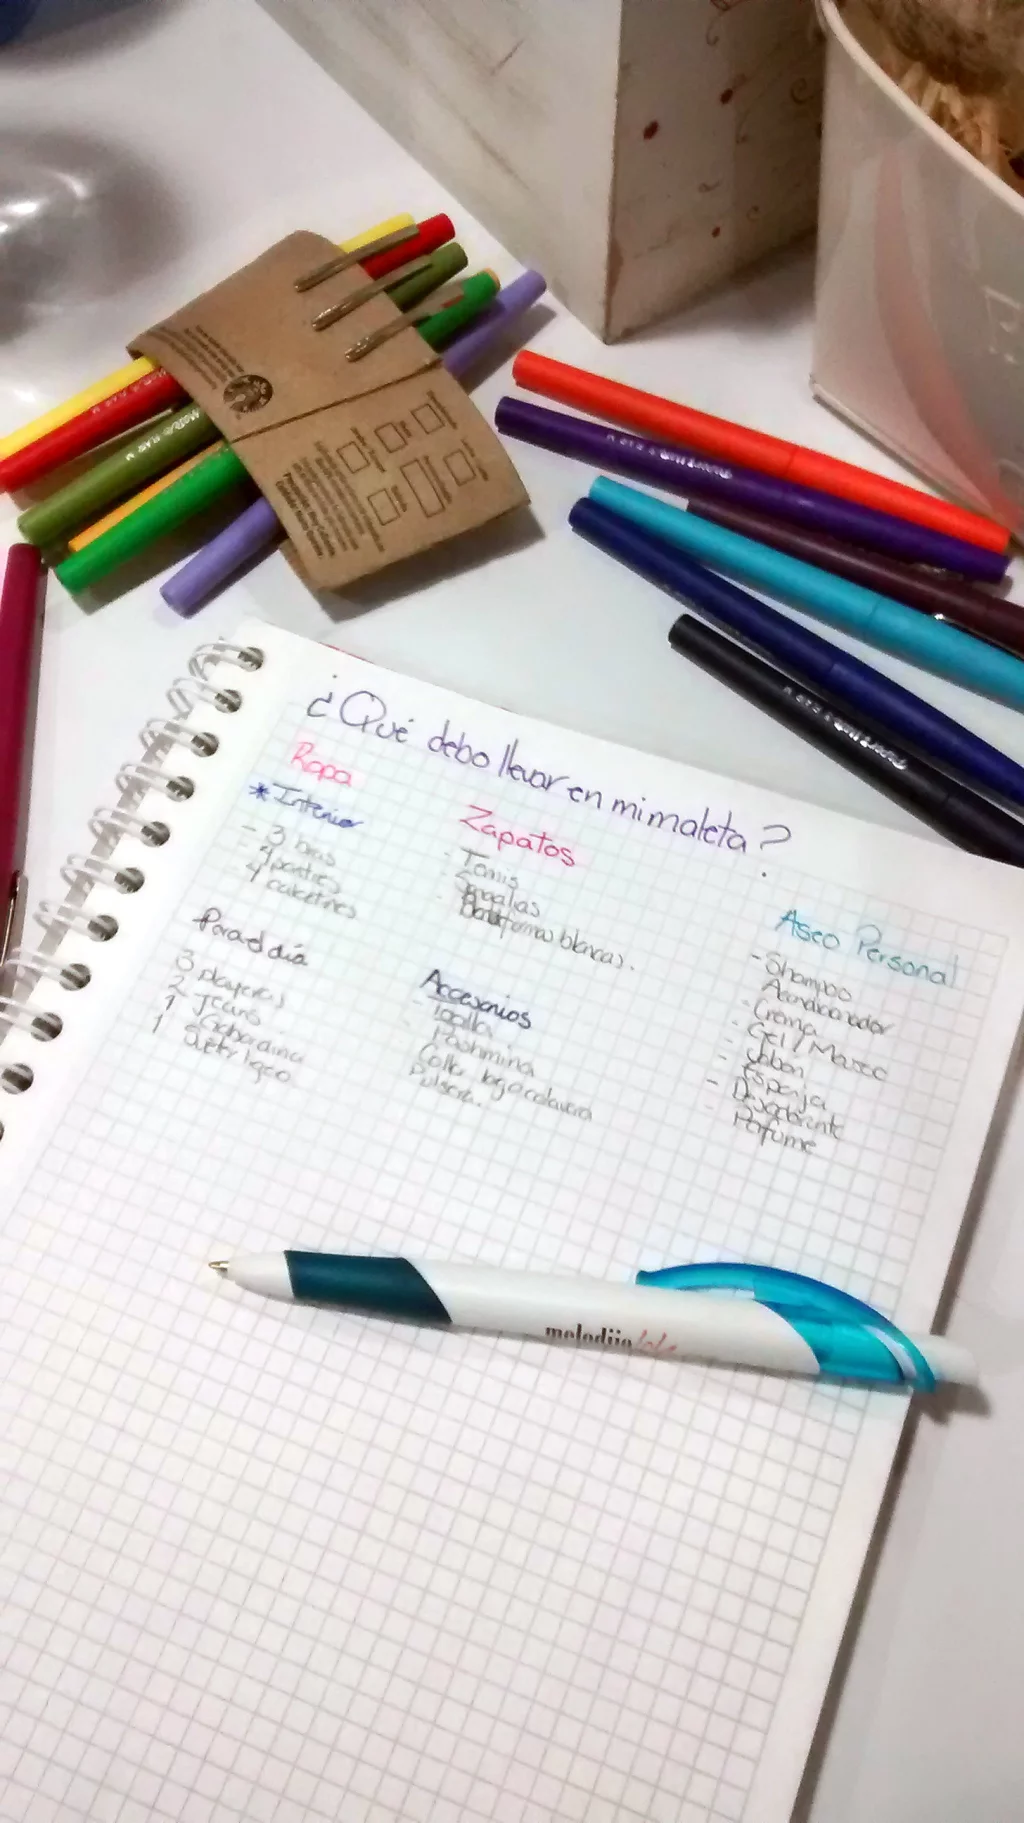 ¿Qué debo llevar en mi maleta?
Ropa
*Interior
- 3 bras
- 3 panties
- 4 calcetines
Para el día
3 playeras
2 Jeans
1 Gabardina
1 Suéter ligero
Zapatos
- Tenis
- Sandalias
- Plataformas blancas.
Accesorios
- Toalla
- Pashmina
Collar largo calavera
Pulsera.
Aseo Personal
- Shampoo
Acondicionador
- Crema
- Gel / Mousse
- Jabón
- Esponja
- Desodorante
- Perfume